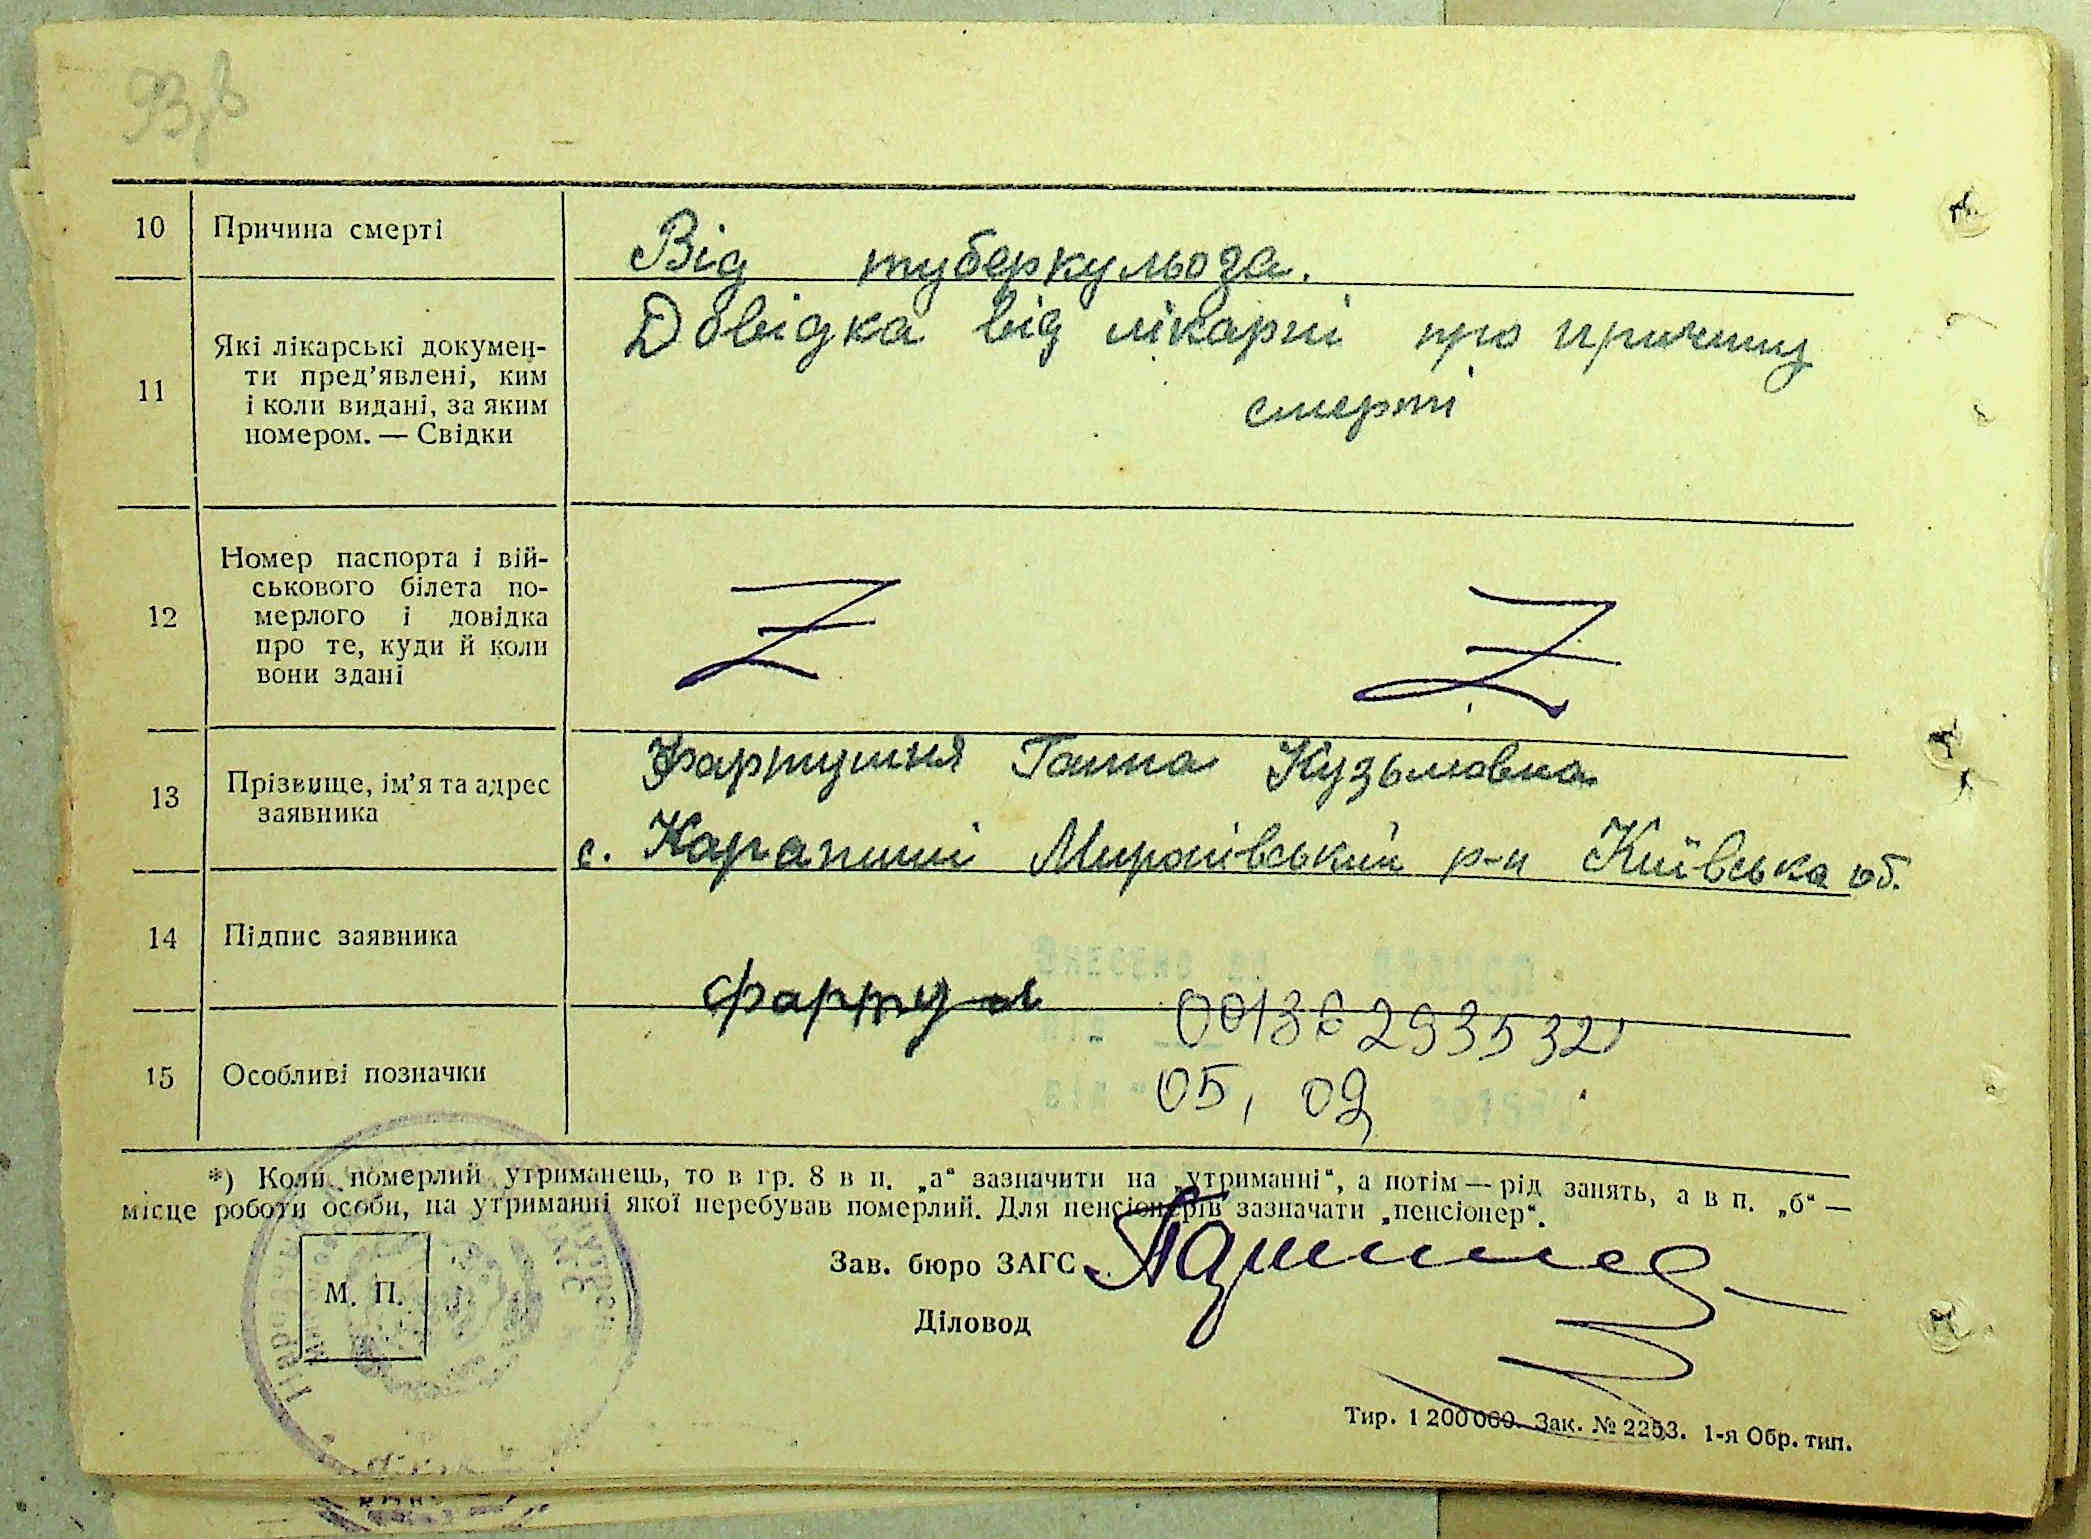 93, в
10 Причина смерті Від туберкульоза.
11 Які лікарські докумен-
ти пред'явлені, ким
і коли видані, за яким
номером. — Свідки
Довідка від лікарні про причину
смерті
12 Номер паспорта і вій-
ськового білета по-
мерлого і довідка
про те, куди й коли
вони здані
13 Прізвище, ім'я та адрес
заявника
Фартушня Ганна Кузьмовна
с. Карапиші Миронівський р-н Київська об.
14 Підпис заявника
Фарту
15 Особливі позначки
00138293532
05, 02
*) Коли померлий утриманець, то в гр. 8 в п. „а“ зазначити на „утриманні“, а потім — рід занять, а в п. „б“ —
місце роботи особи, на утриманні якої перебував померлий. Для пенсіонерів зазначати „пенсіонер“.
М. П.
Зав. бюро ЗАГС
Діловод
Тир. 1 200 000. Зак. № 2253. 1-я Обр. тип.